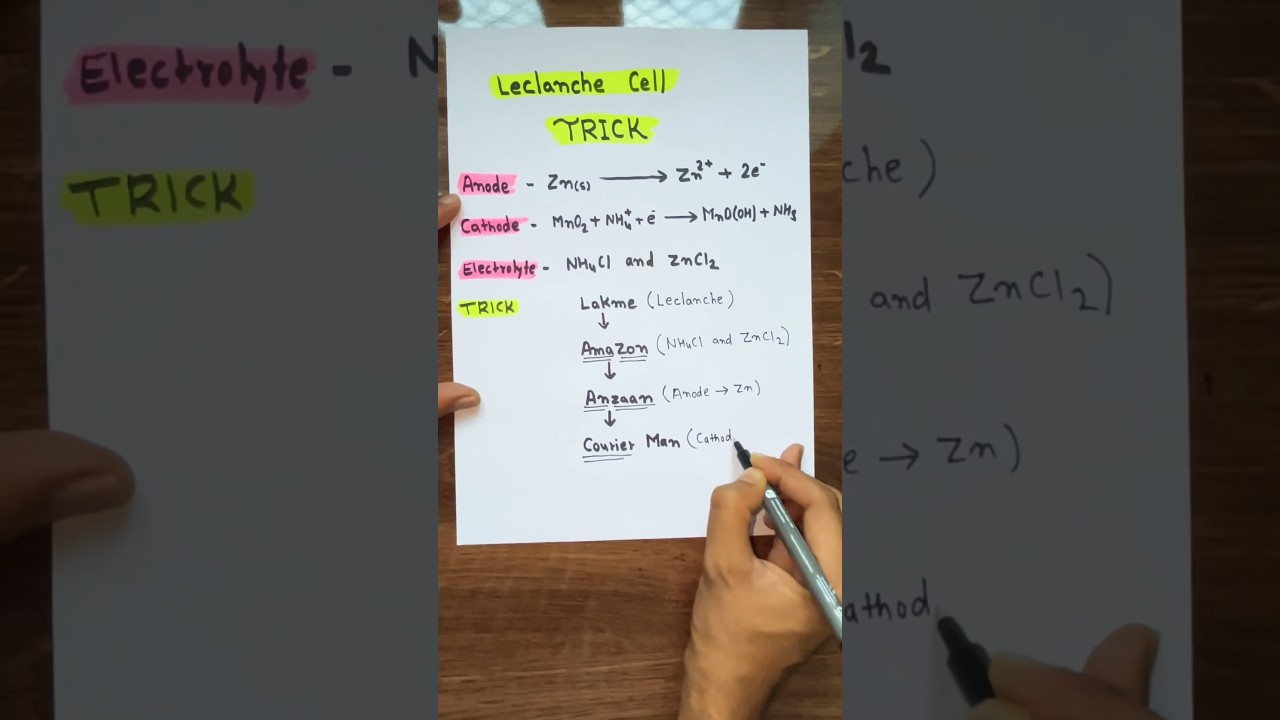 Leclanche Cell
TRICK
Anode - Zn(s) ⟶ Zn²⁺ + 2e⁻
Cathode - MnO₂ + NH₄⁺ + e⁻ ⟶ MnO(OH) + NH₃
Electrolyte - NH₄Cl and ZnCl₂
TRICK Lakme (Leclanche)
↓
Amazon (NH₄Cl and ZnCl₂)
↓
Anzaan (Anode → Zn)
↓
Courier Man (Cathod